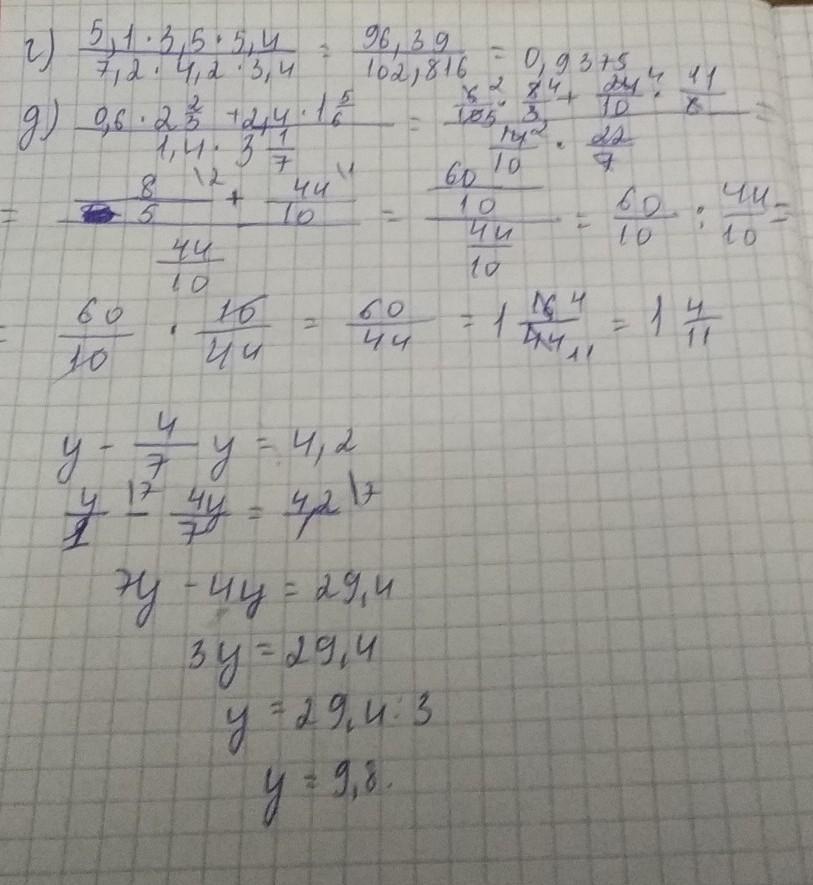 г) (5,1 · 3,5 · 5,4)/(7,2 · 4,2 · 3,4) = 96,39/102,816 = 0,9375
д) (0,6 · 2 2/3 + 2,4 · 1 5/6)/(1,4 · 3 1/7) = (6²/10 5 · 8⁴/3 + 24⁴/10 · 11/6)/(14²/10 · 22/7) =
= (8/5 \2 + 44/10 \1)/(44/10) = (60/10)/(44/10) = 60/10 : 44/10 =
= 60/10 · 10/44 = 60/44 = 1 16 4/44 11 = 1 4/11
y - 4/7 y = 4,2
y/1 \7 - 4y/7 = 4,2 \7
7y - 4y = 29,4
3y = 29,4
y = 29,4 : 3
y = 9,8.